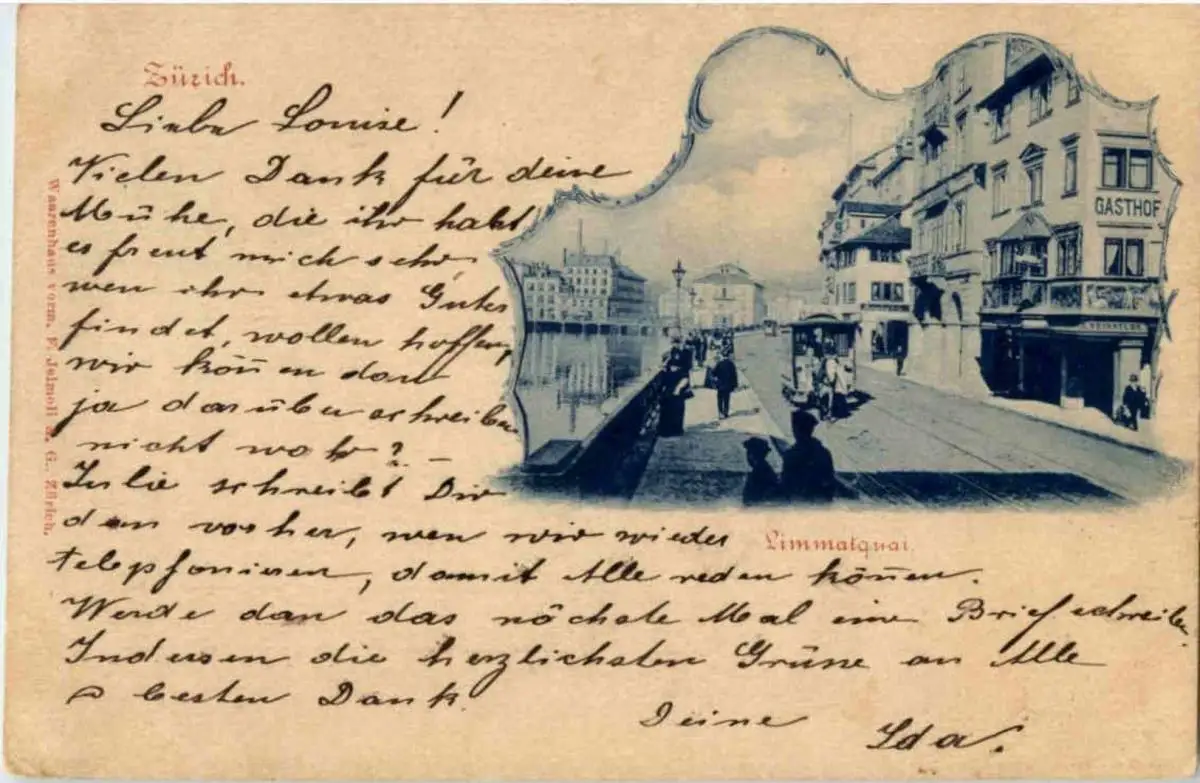 Zürich.
Liebe Louise!
Vielen Dank für deine
Mühe, die ihr habt
es freut mich sehr,
wen ihr etwas Gutes
findet, wollen hoffen,
wir kön̄en dan
ja darüber schreiben
nicht wahr? –
Julie schreibt Dir
dan vorher, wen wir wieder
telepfonieren, damit Alle reden kön̄en.
Werde dan das nächste Mal eine Brief schreiben
Indessen die herzlichsten Grüsse an Alle
besten Dank
Deine Ida.
GASTHOF
Limmatquai.
Waarenhaus vorm. F. Jelmoli A. G., Zürich.